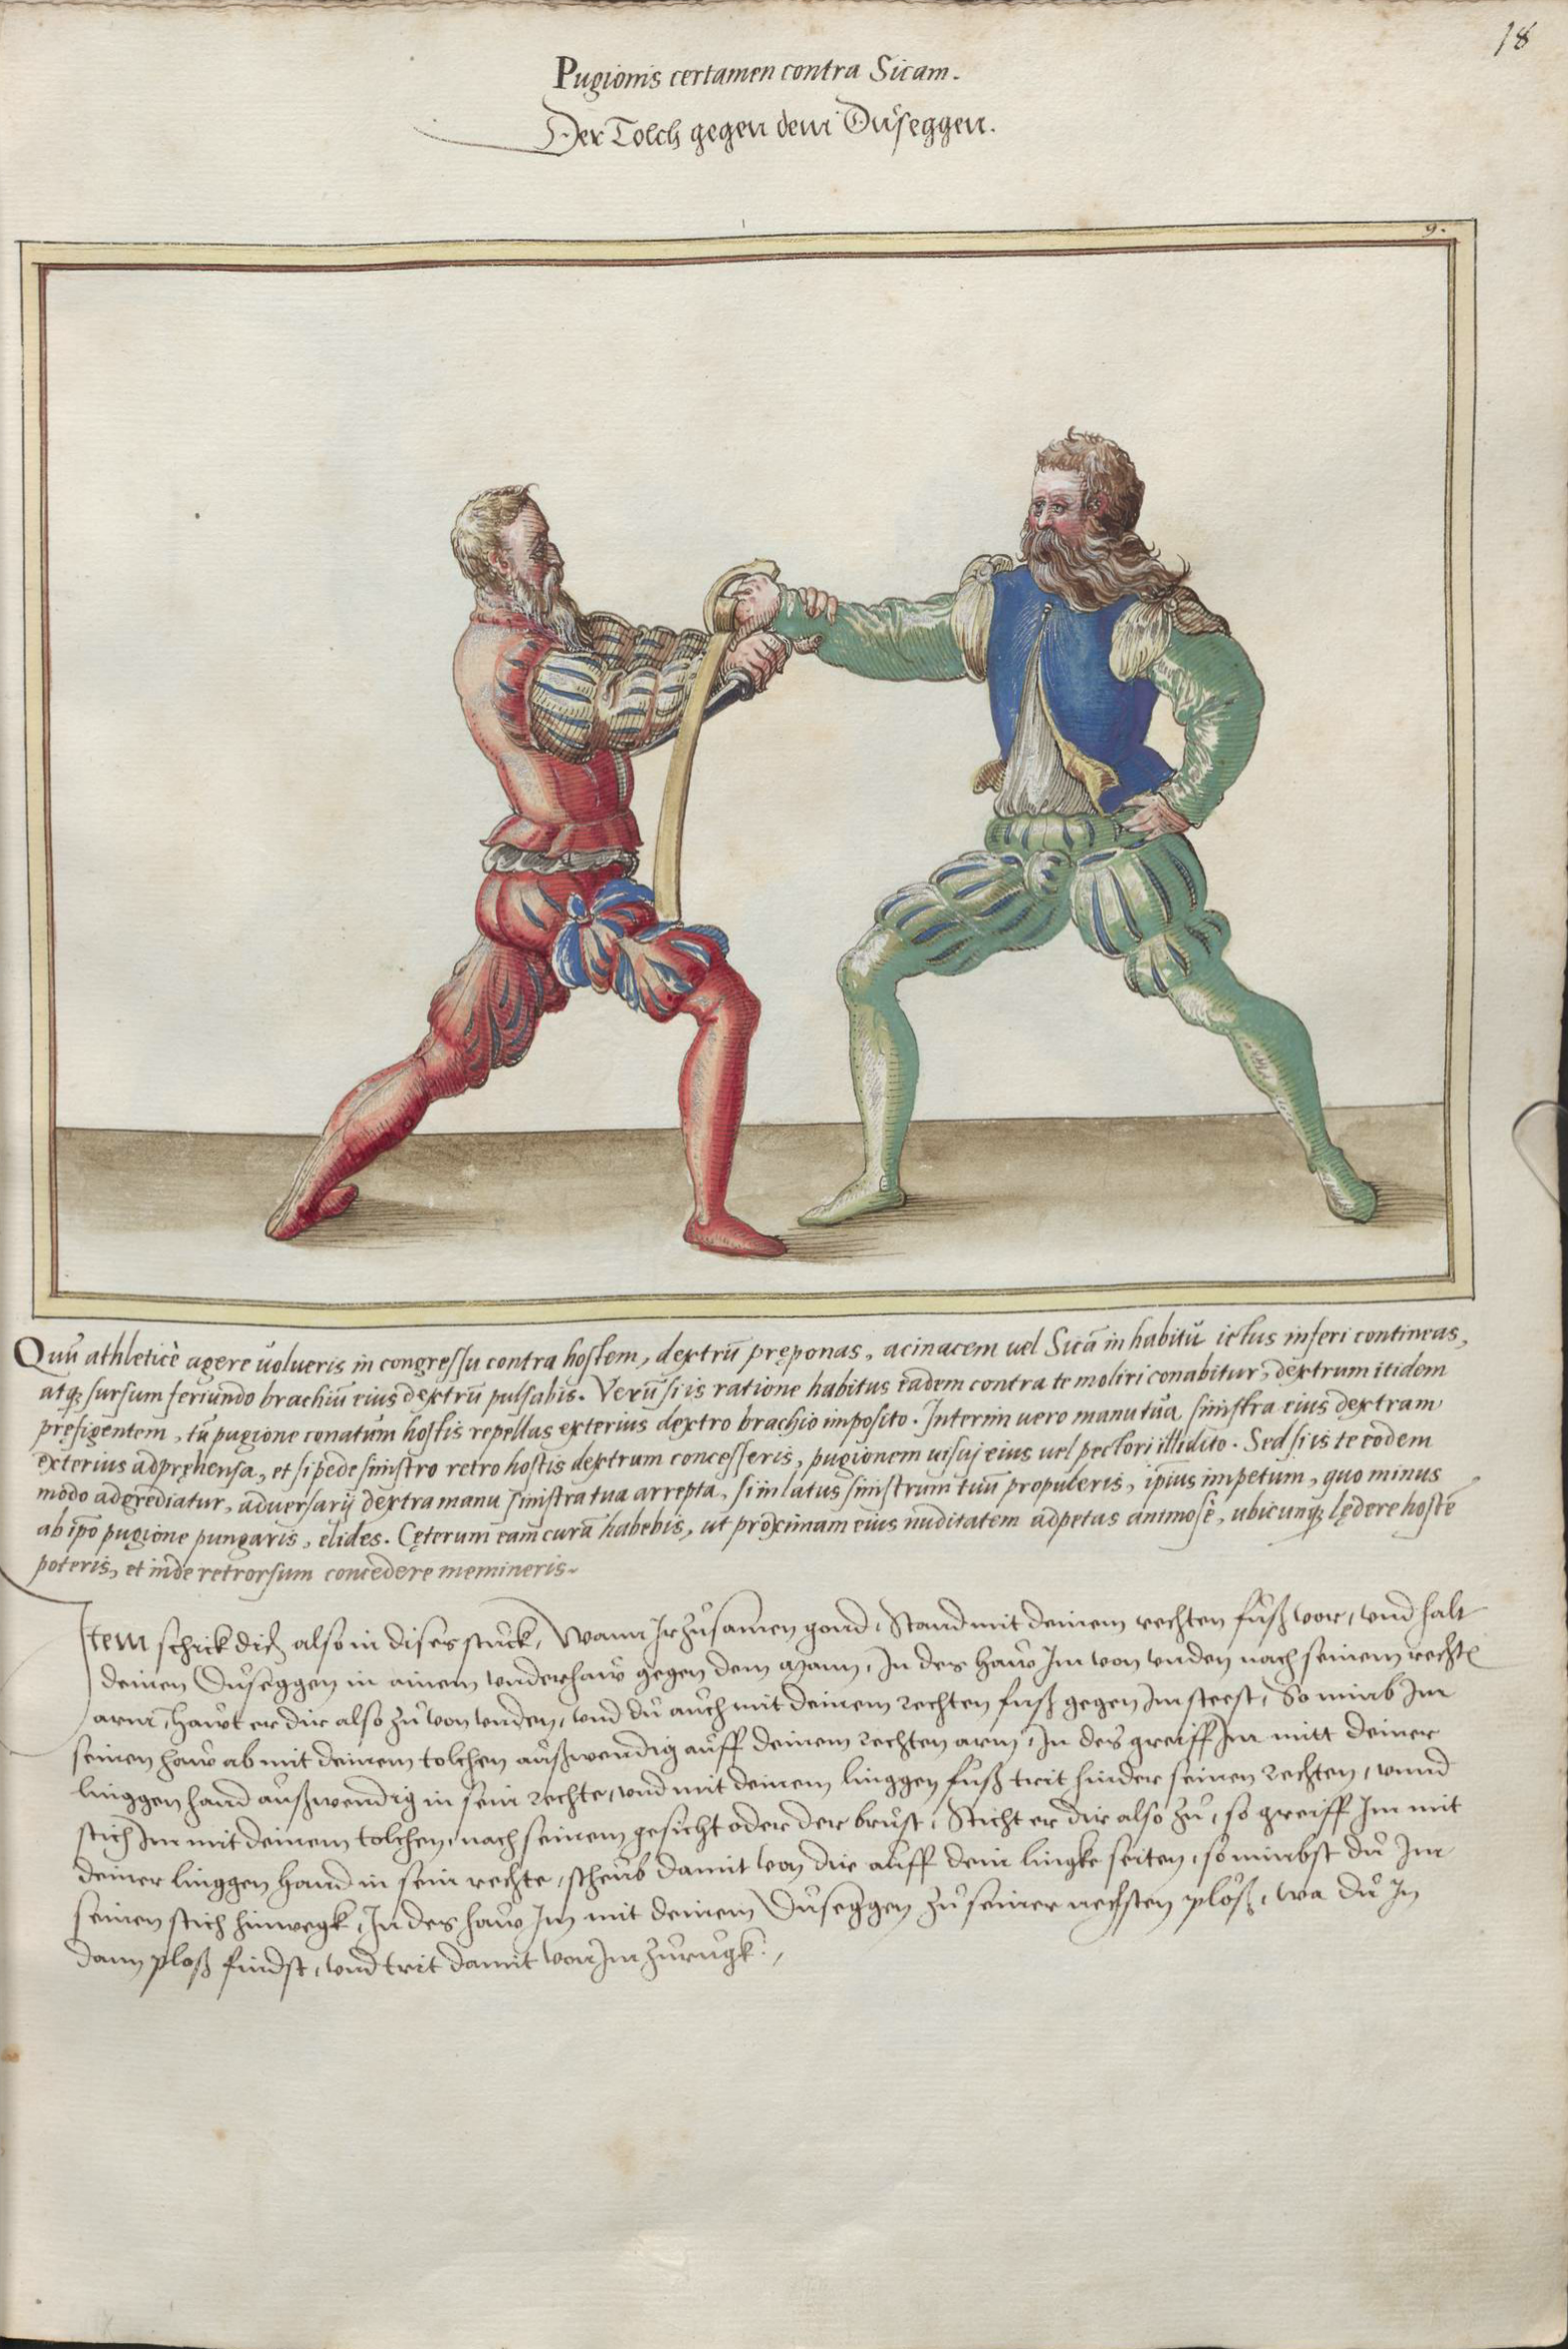 18
Pugionis certamen contra Sicam.
Der Tolch gegen dem Důseggen.
9.
Quũ athleticè agere uolueris in congressu contra hostem, dextrũ pręponas, acinacem uel Sicã in habitũ ictus inferi contineas,
atq; sursum feriundo brachiũ eius dextrũ pulsabis. Verũ si is ratione habitus eadem contra te moliri conabitur, dextrum itidem
pręfigentem, tũ pugione conatum hostis repellas exterius dextro brachio imposito. Interim uero manu tua sinistra eius dextram
exterius adpręhensa, et si pede sinistro retro hostis dextrum concesseris, pugionem uisuj eius uel pectori illidito. Sed si is te eodem
modo adgrediatur, adversarij dextra manu sinistra tua arrepta, si in latus sinistrum tuũ propuleris, ipsius impetum, quo minus
ab ipo pugione pungaris, elides. Cęterum eam curã habebis, ut proximam eius nuditatem adpetas animosè, ubicunq; lędere hostẽ
poteris, et inde retrorsum concedere memineris.
Item schick dich also in dises stuck, Wann Ir zůsamen gond, Stand mit deinem rechten fůß vor, vnd halt
deinen Důseggen in ainem vnderhaw gegen dem Mann, In des haw Im von vnden nach seinem rechtē
arm, hawt er dir also zů von vnden, vnd du auch mit deinem rechten fuß gegen Im steest, So nimb Im
seinen haw ab mit deinem tolchen außwendig auff deinem rechten arm, In des greiff Im mitt deiner
linggen hand außwendig in sein rechte, vnd mit deinem linggen fůß trit hinder seinen rechten, vnnd
stich Im mit deinem tolchen, nach seinem gesicht oder der brust, Sticht er dir also zů, so greiff Im mit
deiner linggen hand in sein rechte, scheub damit von dir auff dein lingke seiten, so nimbst du Im
seinen stich hinwegk, In des haw Im mit deinem Důseggen zů seiner nechsten plöß, wa du In
dann ploß findst, vnd trit damit von Im zůrugk.